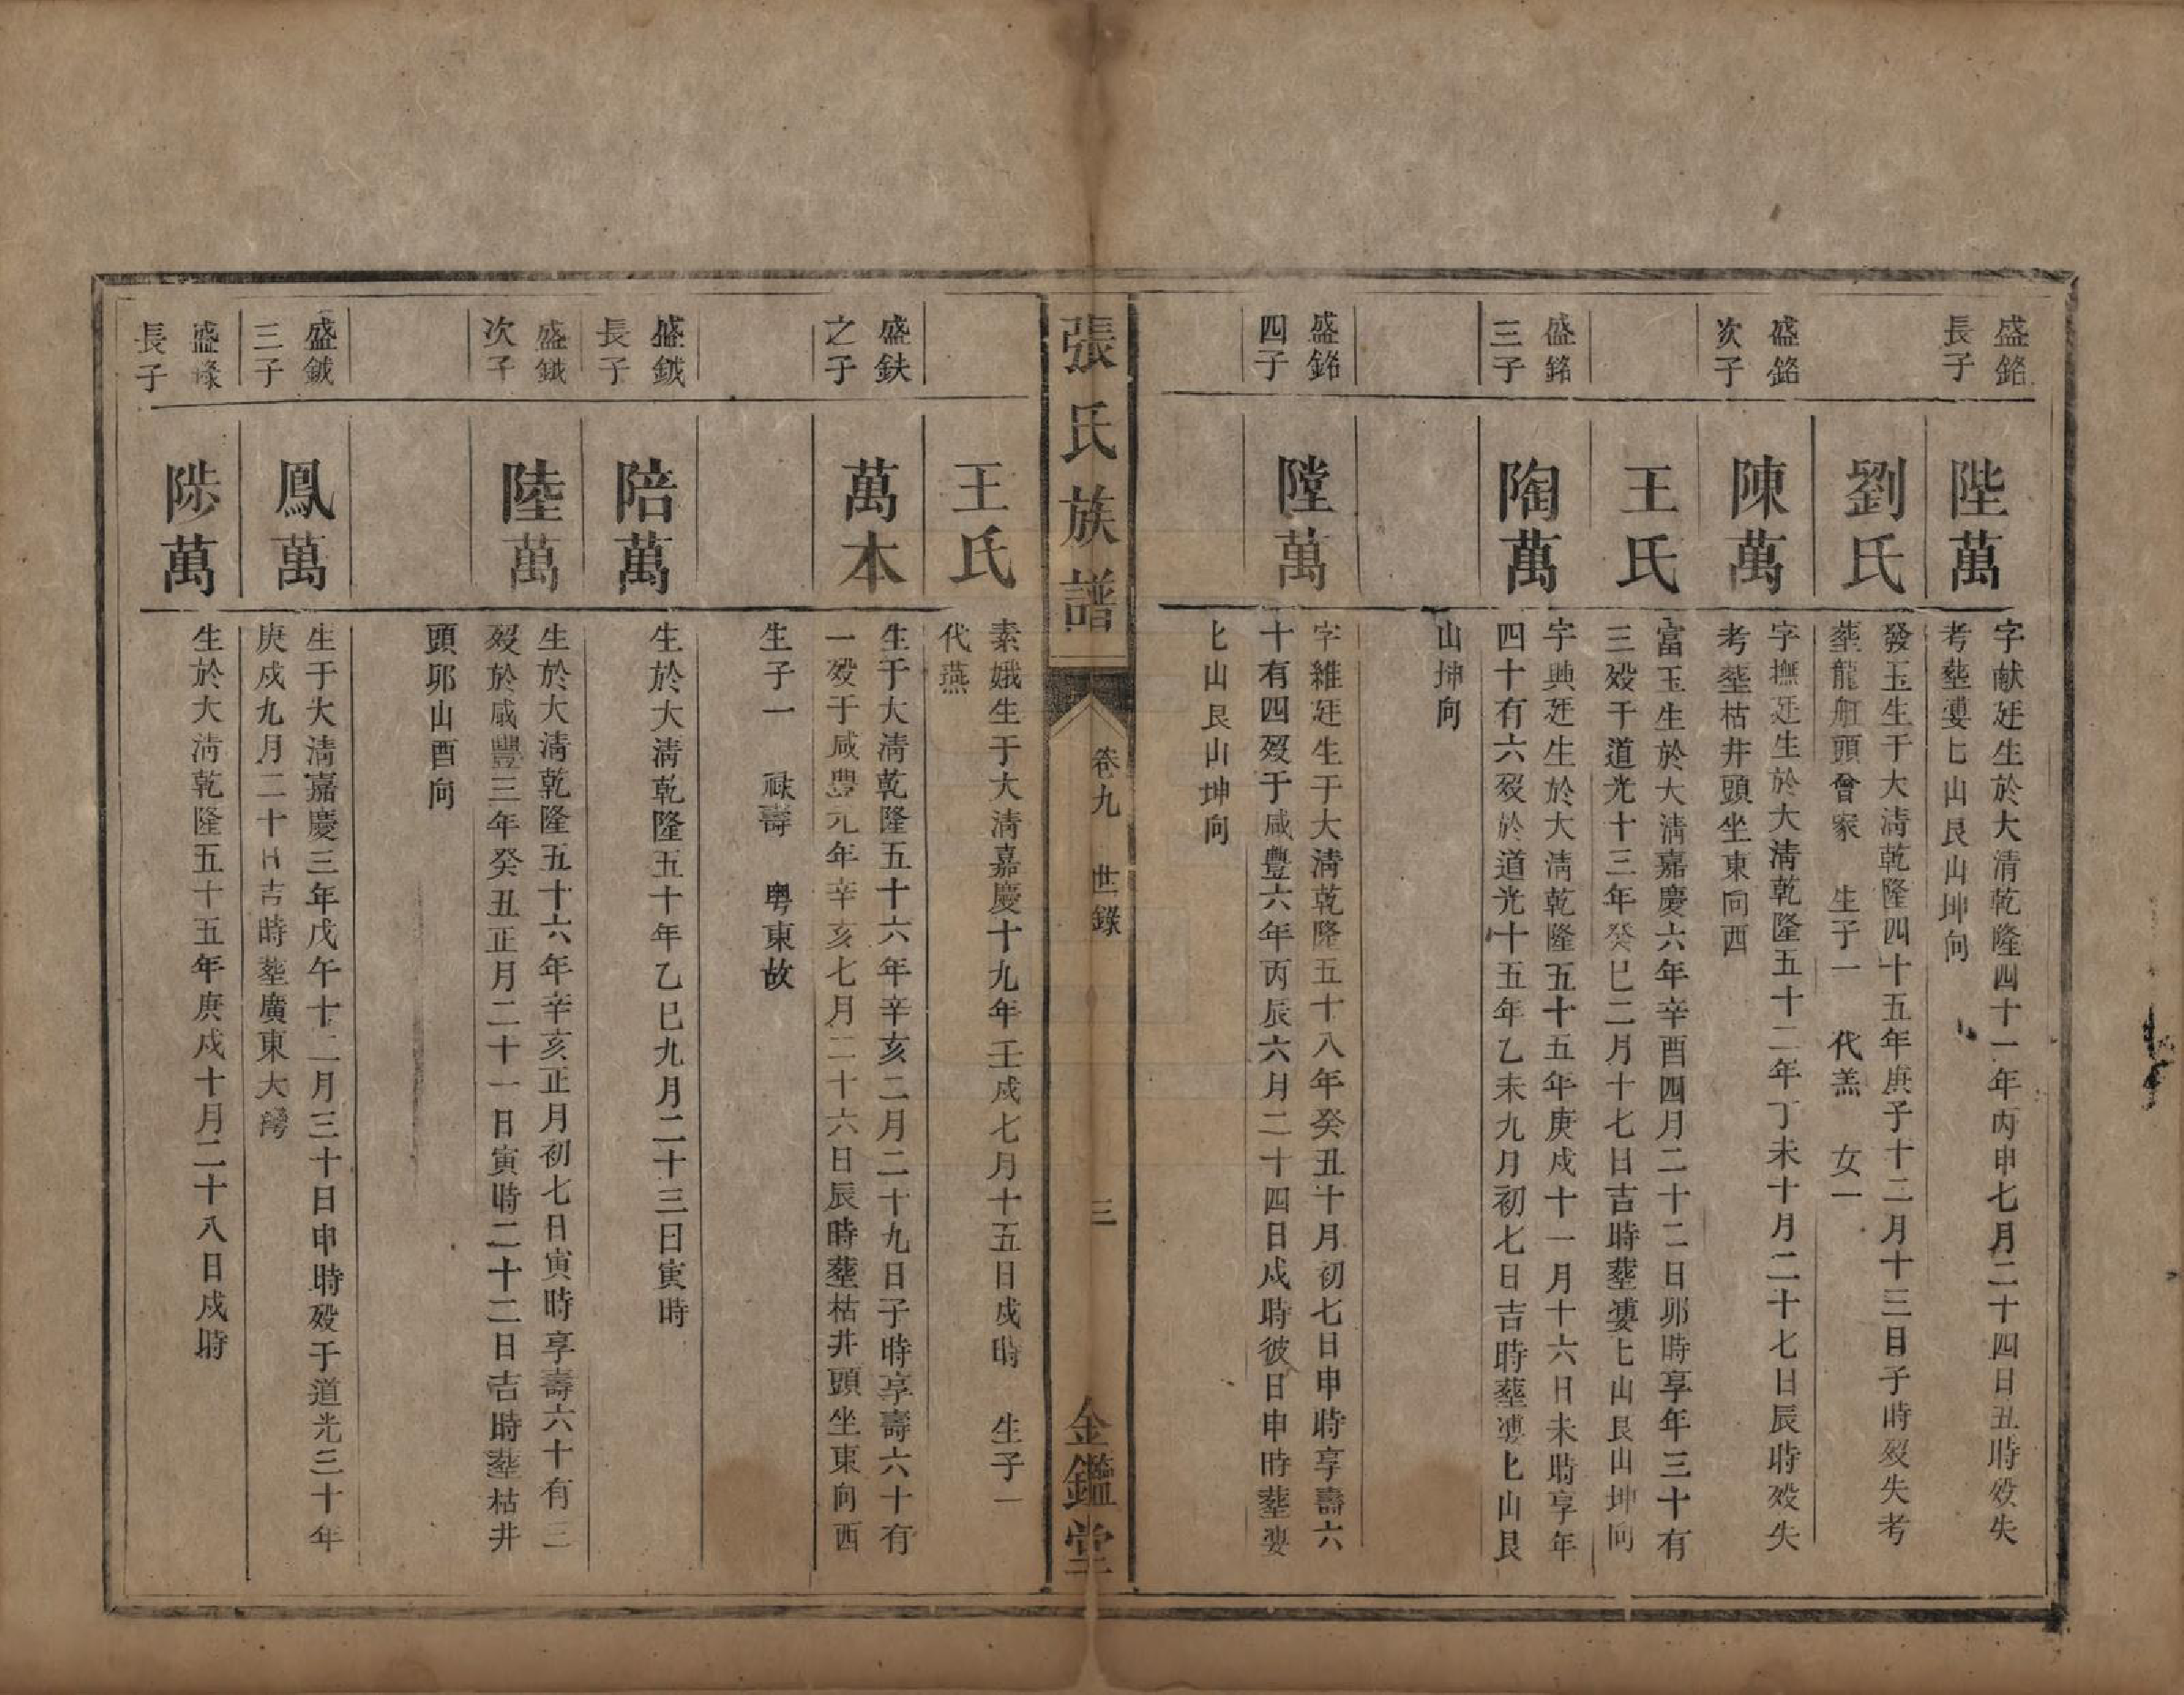 盛銘
長子
陛萬
字献廷生於大清乾隆四十一年丙申七月二十四日丑時殁失
考塟婁匕山艮山坤向
劉氏
發玉生于大清乾隆四十五年庚子十二月十三日子時殁失考
塟龍船頭曾家　生子一　代羔　女一
盛銘
次子
陳萬
字撫廷生於大清乾隆五十二年丁未十月二十七日辰時殁失
考塟枯井頭坐東向西
王氏
富玉生於大清嘉慶六年辛酉四月二十二日夘時享年三十有
三殁于道光十三年癸巳二月十七日吉時塟婁匕山艮山坤向
盛銘
三子
陶萬
字典廷生於大清乾隆五十五年庚戍十一月十六日未時享年
四十有六殁於道光十五年乙未九月初七日吉時塟婁匕山艮
山坤向
盛銘
四子
隉萬
字維廷生于大清乾隆五十八年癸丑十月初七日申時享壽六
十有四殁于咸豐六年丙辰六月二十四日戍時彼日申時塟婁
匕山艮山坤向
張氏族譜
卷九　世錄
三
金鑑堂
王氏
素娥生于大清嘉慶十九年壬戍七月十五日戍時　生子一
代燕
盛鈌
之子
萬本
生于大清乾隆五十六年辛亥二月二十九日子時享壽六十有
一殁于咸豐元年辛亥七月二十六日辰時塟枯井頭坐東向西
生子一　祿壽　粤東故
盛鉞
長子
陪萬
生於大清乾隆五十年乙巳九月二十三日寅時
盛鉞
次子
陸萬
生於大清乾隆五十六年辛亥正月初七日寅時享壽六十有三
殁於咸豐三年癸丑正月二十一日寅時二十二日吉時塟枯井
頭夘山酉向
盛鉞
三子
鳳萬
生于大清嘉慶三年戊午十二月三十日申時殁于道光三十年
庚戍九月二十日吉時塟廣東大灣
盛祿
長子
陟萬
生於大清乾隆五十五年庚戍十月二十八日戍時